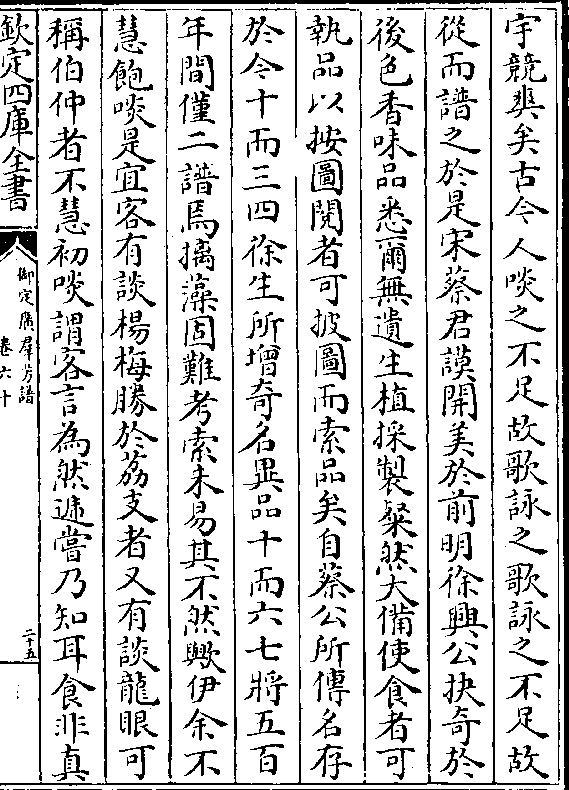 宇競爽矣古今人啖之不足故歌詠之歌詠之不足故
從而譜之於是宋蔡君謨開美於前明徐興公抉奇於
後色香味品悉爾無遺生植採製粲然大備使食者可
執品以按圖閱者可披圖而索品矣自蔡公所傳名存
於今十而三四徐生所增奇名異品十而六七將五百
年間僅二譜焉摛藻固難考索未易其不然歟伊余不
慧飽啖是宜客有談楊梅勝於荔支者又有談龍眼可
稱伯仲者不慧初啖謂客言為然遞嘗乃知耳食非真
欽定四庫全書
御定廣群芳譜
卷六十
二十五